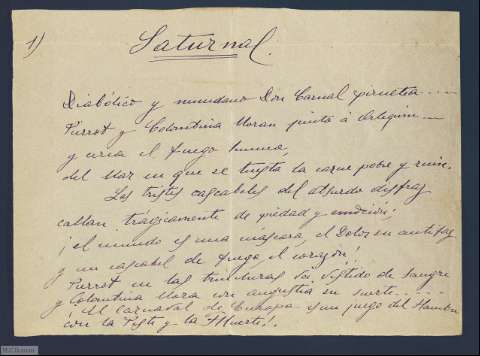 1)
Saturnal.
Diabólico y mundano Don Carnal pirueta....
Pierrot y Colombina lloran junto á Arlequin...
y el fuego humea,
del Mar en que se tuesta la carne pobre y ruin.
Los tristes cascabeles del absurdo disfraz
callan trágicamente de piedad y emoción;
¡el mundo es una máscara, el Dolor su antifaz
y un cascabel de fuego el corazón!
Pierrot en las trincheras va vestido de sangre
y Colombina llora con angustia su suerte.....
¡El Carnaval de Europa es un juego del Hambre
con la Peste y la Muerte!